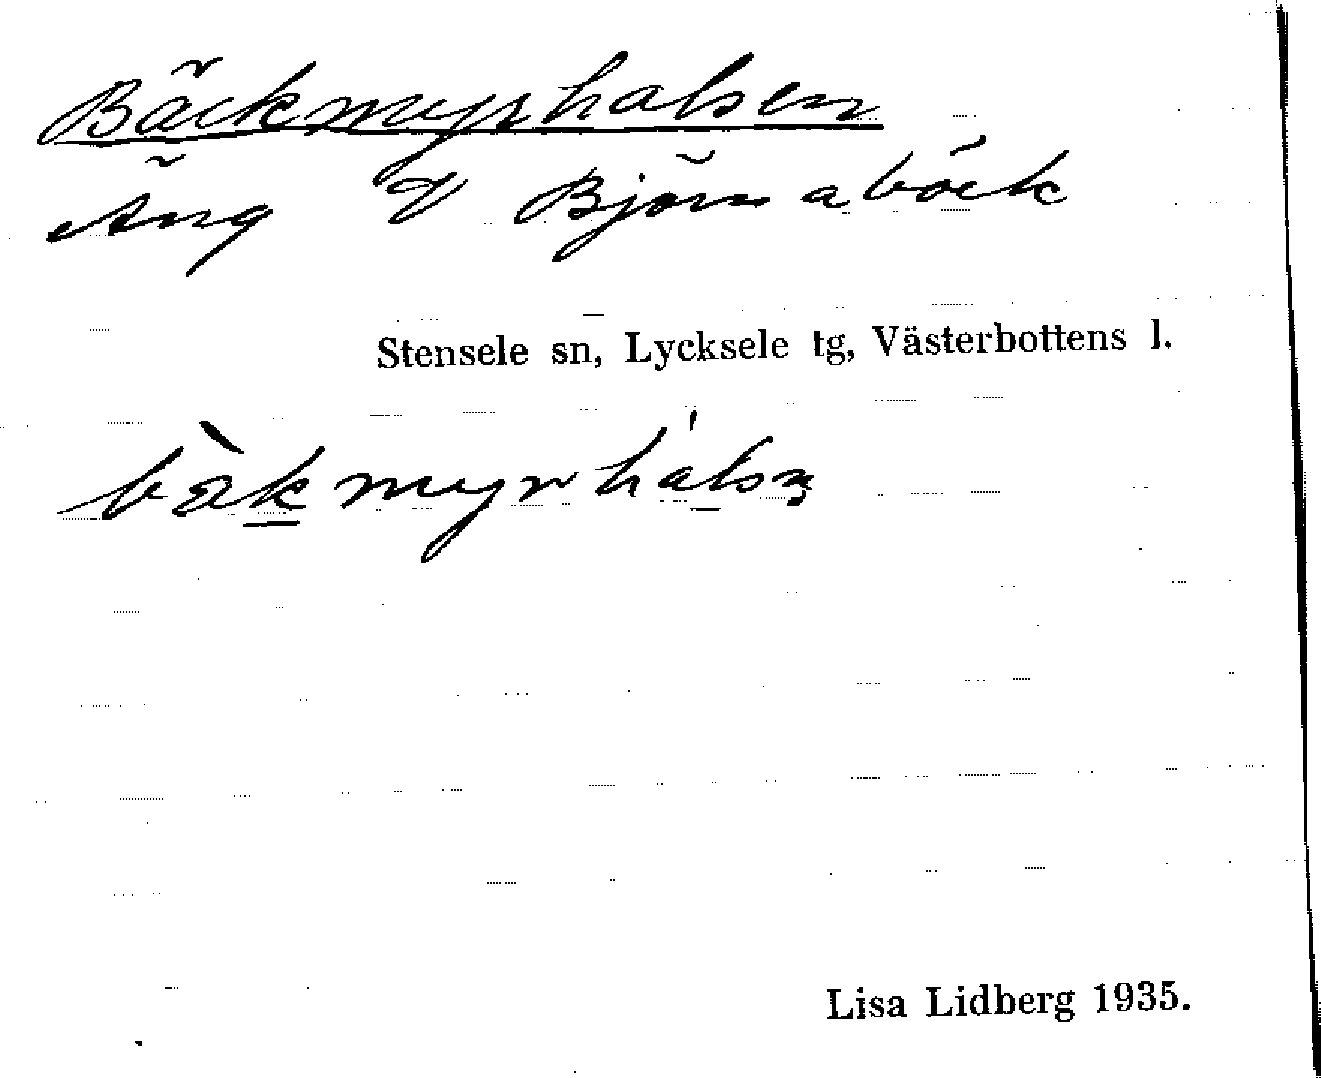 Bäckmyrhalsen
Äng V Björnabäck
Stensele sn, Lycksele tg, Västerbottens l.
bæ̀kmyrhálsn̥
Lisa Lidberg 1935.